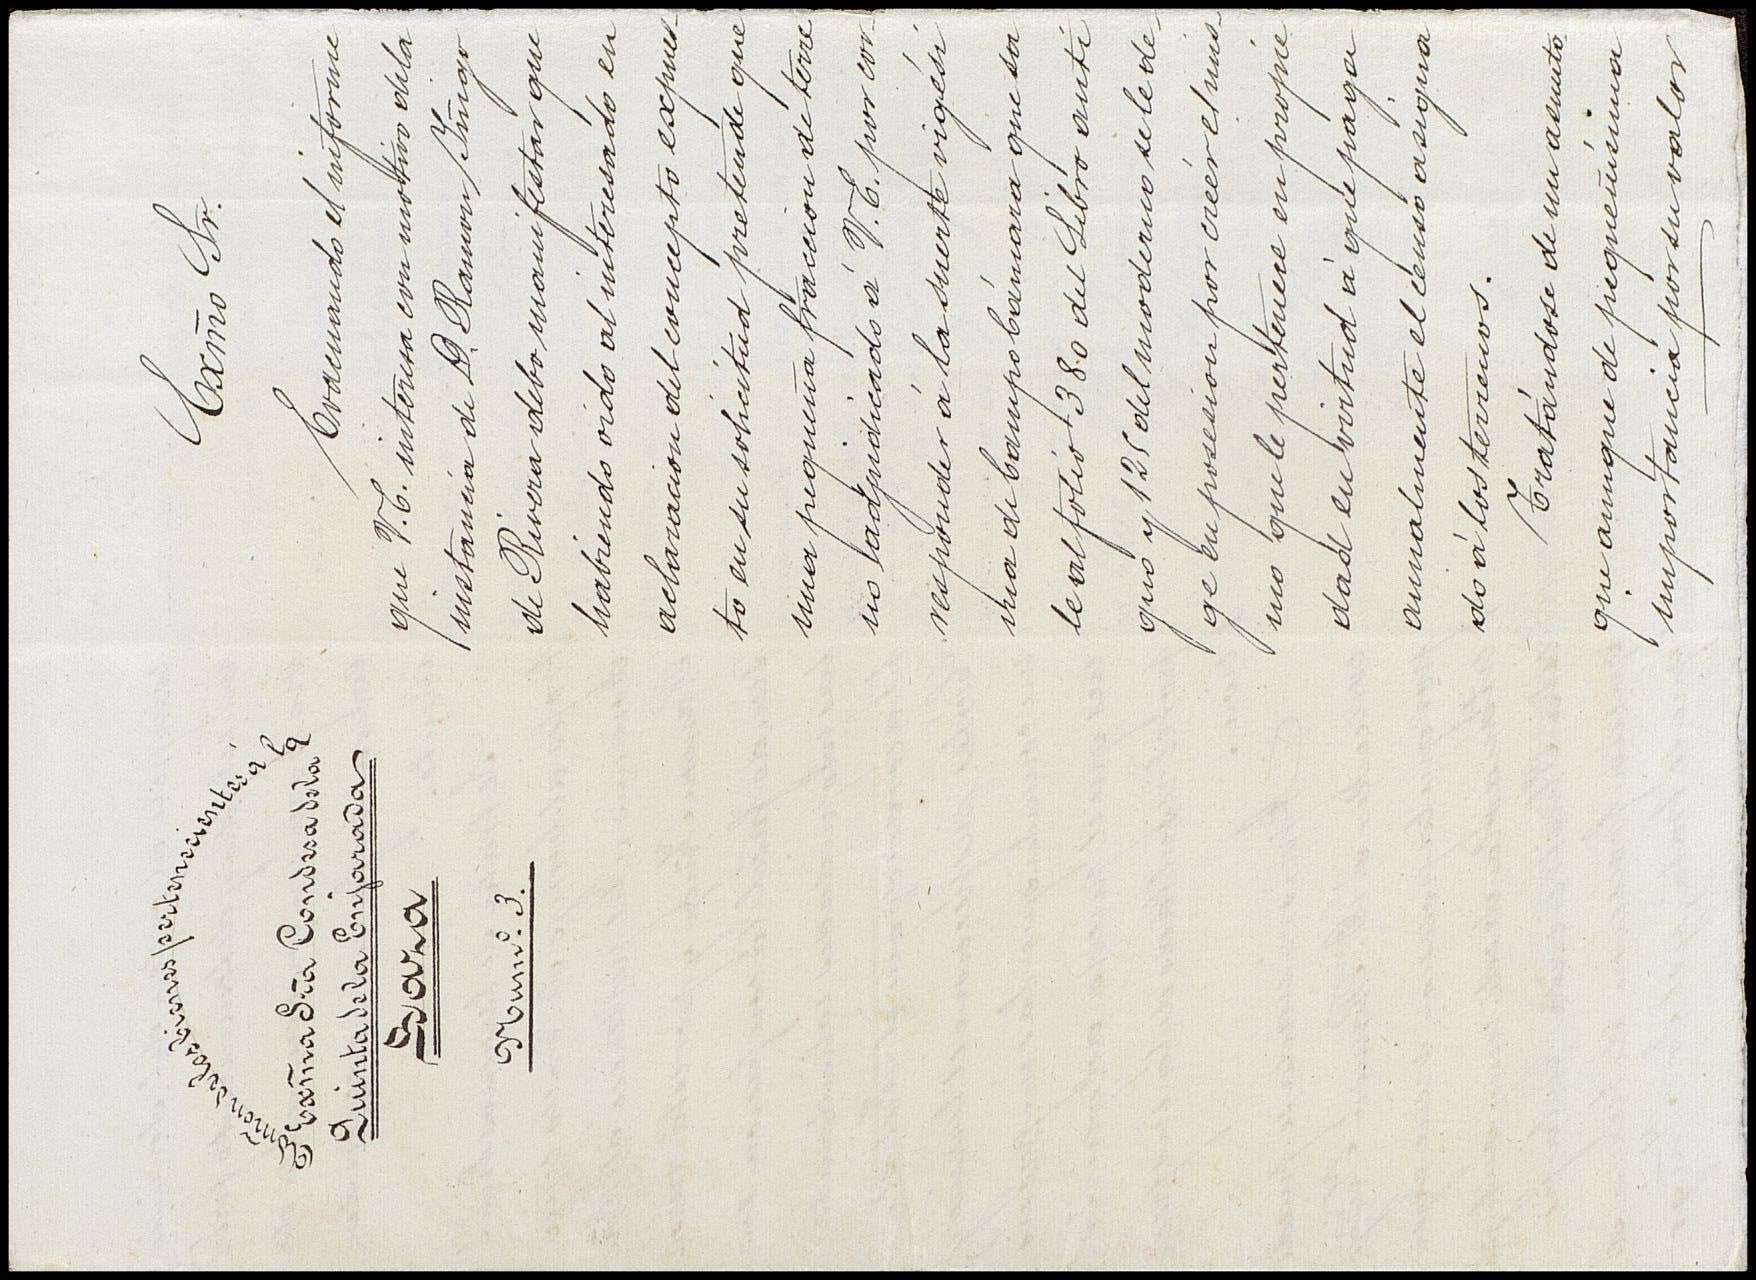 Admón de los bienes pertenecientes á la
Exm̃a Sr̃a Condesa de la
Quinta de la Enjarada
Baza
Num.º 3.
Exm̃o Sr.
Evacuando el informe
que V.E. interesa con motivo de la
instancia de D. Ramon Iñigo
de Rivera debo manifestar que
habiendo oido al interesado en
aclaracion del concepto expues-
to en su solicitud pretende que
una pequeña fraccion de terre
no ladjudicado á V.E. por cor-
responder á la suerte vigési
ma de Campo bámara que sa
le al folio 380 del Libro anti
guo y 125 del moderno se le de-
ge en posesion por creér el mis-
mo que le pertenece en propie
dad en virtud á que paga
anualmente el censo asigna
do á los terrenos.
Tratándose de un asunto
que aunque de pequeñisima
importancia por su valor